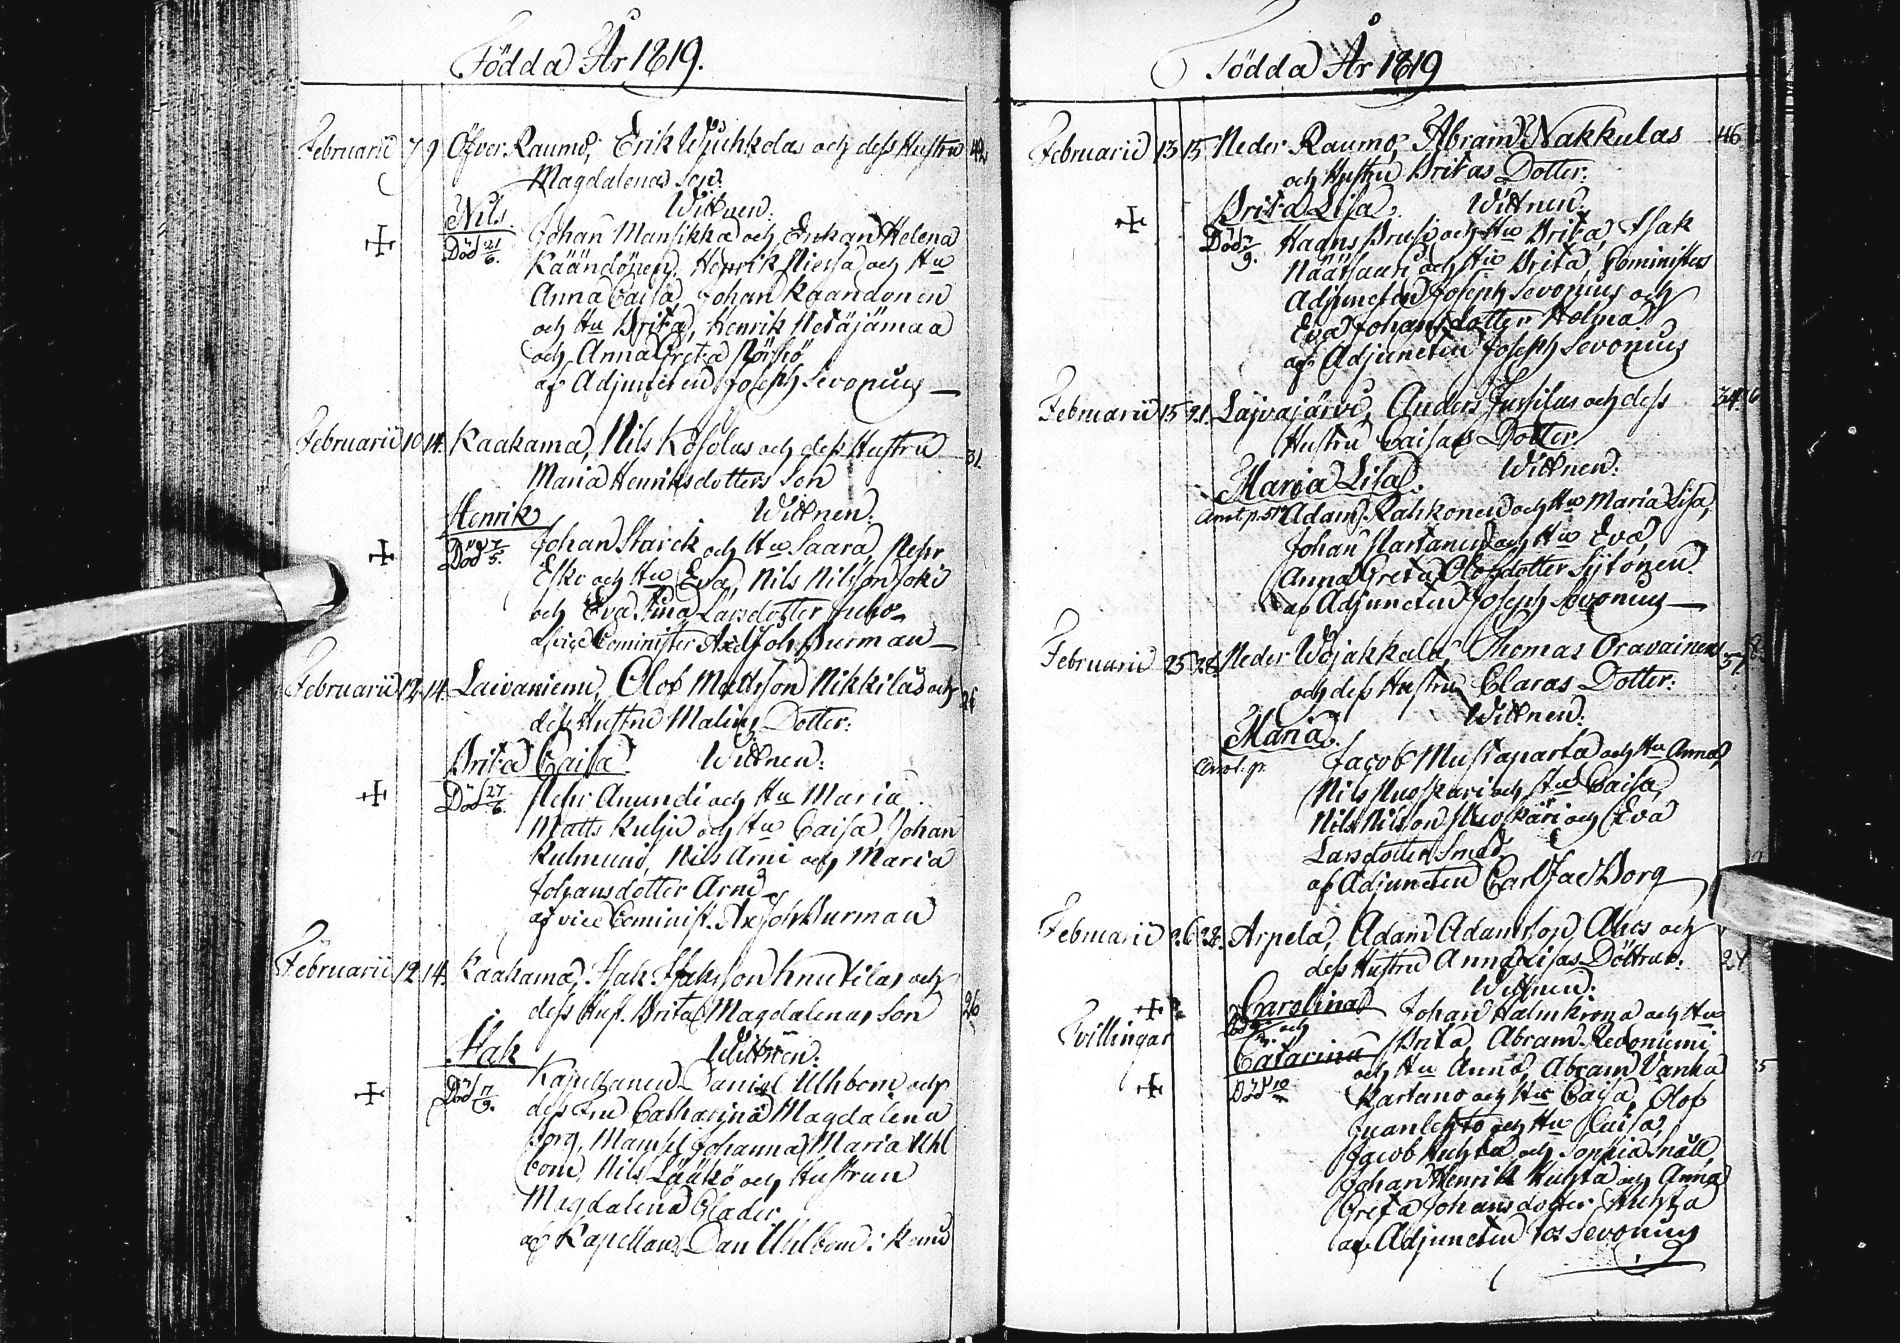 Födda År 1819.
Februarii 7 9 Öfver Raumo, Erik och dess Hustru 42
Magdalenas Son.
Nils Wittnen:
Död 21/6. Johan Mansikka och Enkan Helena
Henrik Niessa och Hu
Anna Caisa, Johan Kaandonen
och Hu Brita, Henrik Hetäjämaa
och Anna Greta
af Adjuncten Joseph Sevonius
Februarii 10 14. Kaakama, Nils Kosolas och dess Hustru 31.
Maria Henriksdotters Son
Henrik Wittnen:
Död 7/5. Johan Starck och Hu Saara, Pehr
Esko och Hu Eva, Nils Nilsson Joki
och Eva Stina Larsdotter Juho
af vice Cominister Ax Joh Burman
Februarii 12 14. Laivaniemi, Olof Mattsson Nikkilas och
dess Hustru Malins Dotter:
Brita Caisa Wittnen:
Död 27/6. Pehr Anundi och Hu Maria
Matts Kulju och Hu Caisa, Johan
Kulmuni, Nils Arni och Maria
Johansdotter Arni
af vice Cominist. Ax Joh Burman
Februarii 12 14. Kaakama, Isak Isaksson Knutilas och 26
dess Hus. Brita Magdalenas Son
Isak Wittnen:
Död 17/9. Kapellanen Daniel Uhlbom och
dess Fru Catharina Magdalena
Borg, Mamsel Johanna Maria Uhl
bom, Nils Lääkö och Hustrun
Magdalena Clader
af Kapellan Dan Uhlbom i Kemi
Födda År 1819
Februarii 13 15 Neder Raumo, Abram Nakkulas 46
och Hustru Britas Dotter.
Brita Lisa. Wittnen:
Död Haans Brusi och Hu Brita, Isak
och Hu Brita, Cominist
Adjuncten Joseph Sevonius och
Eva Johansdotter Holma
af Adjuncten Joseph Sevonius
Februarii 15 21. Laivajärvi, Anders Jussilas och dess 34
Hustru Caisas Dotter.
Maria Lisa. Wittnen:
Adam Rahkonen och Hu Maria Lisa,
Johan Martanen och Hu Eva
Anna Greta Olofsdotter Siitonen
af Adjuncten Joseph Sevonius
Februarii 25 28. Neder Wojakkala, Thomas Oravainens 37
och dess Hustru Claras Dotter.
Maria. Wittnen:
Jacob Mustaparta och Hu Anna,
Nils Ruoskari och Hu Caisa,
Nils Nilsson Ruoskari och Eva
Larsdotter Smed
af Adjuncten Carl Jac Borg
Februarii 26 28. Arpela, Adam Adamsson Ahos och 24
dess Hustru Anna Lisas Döttrar.
Wittnen:
Carolina Johan Halmkrona och Hu
Tvillingar och Brita, Abram Kedoniemi
Catarina och Hu Anna, Abram Vanha
Död Kartano och Hu Caisa, Olof
Juanlehto och Hu Caisa,
Jacob Huhta och Sophia Snäll,
Johan Henrik Huhta och Anna
Greta Johansdotter Huhta
af Adjuncten Jos Sevonius